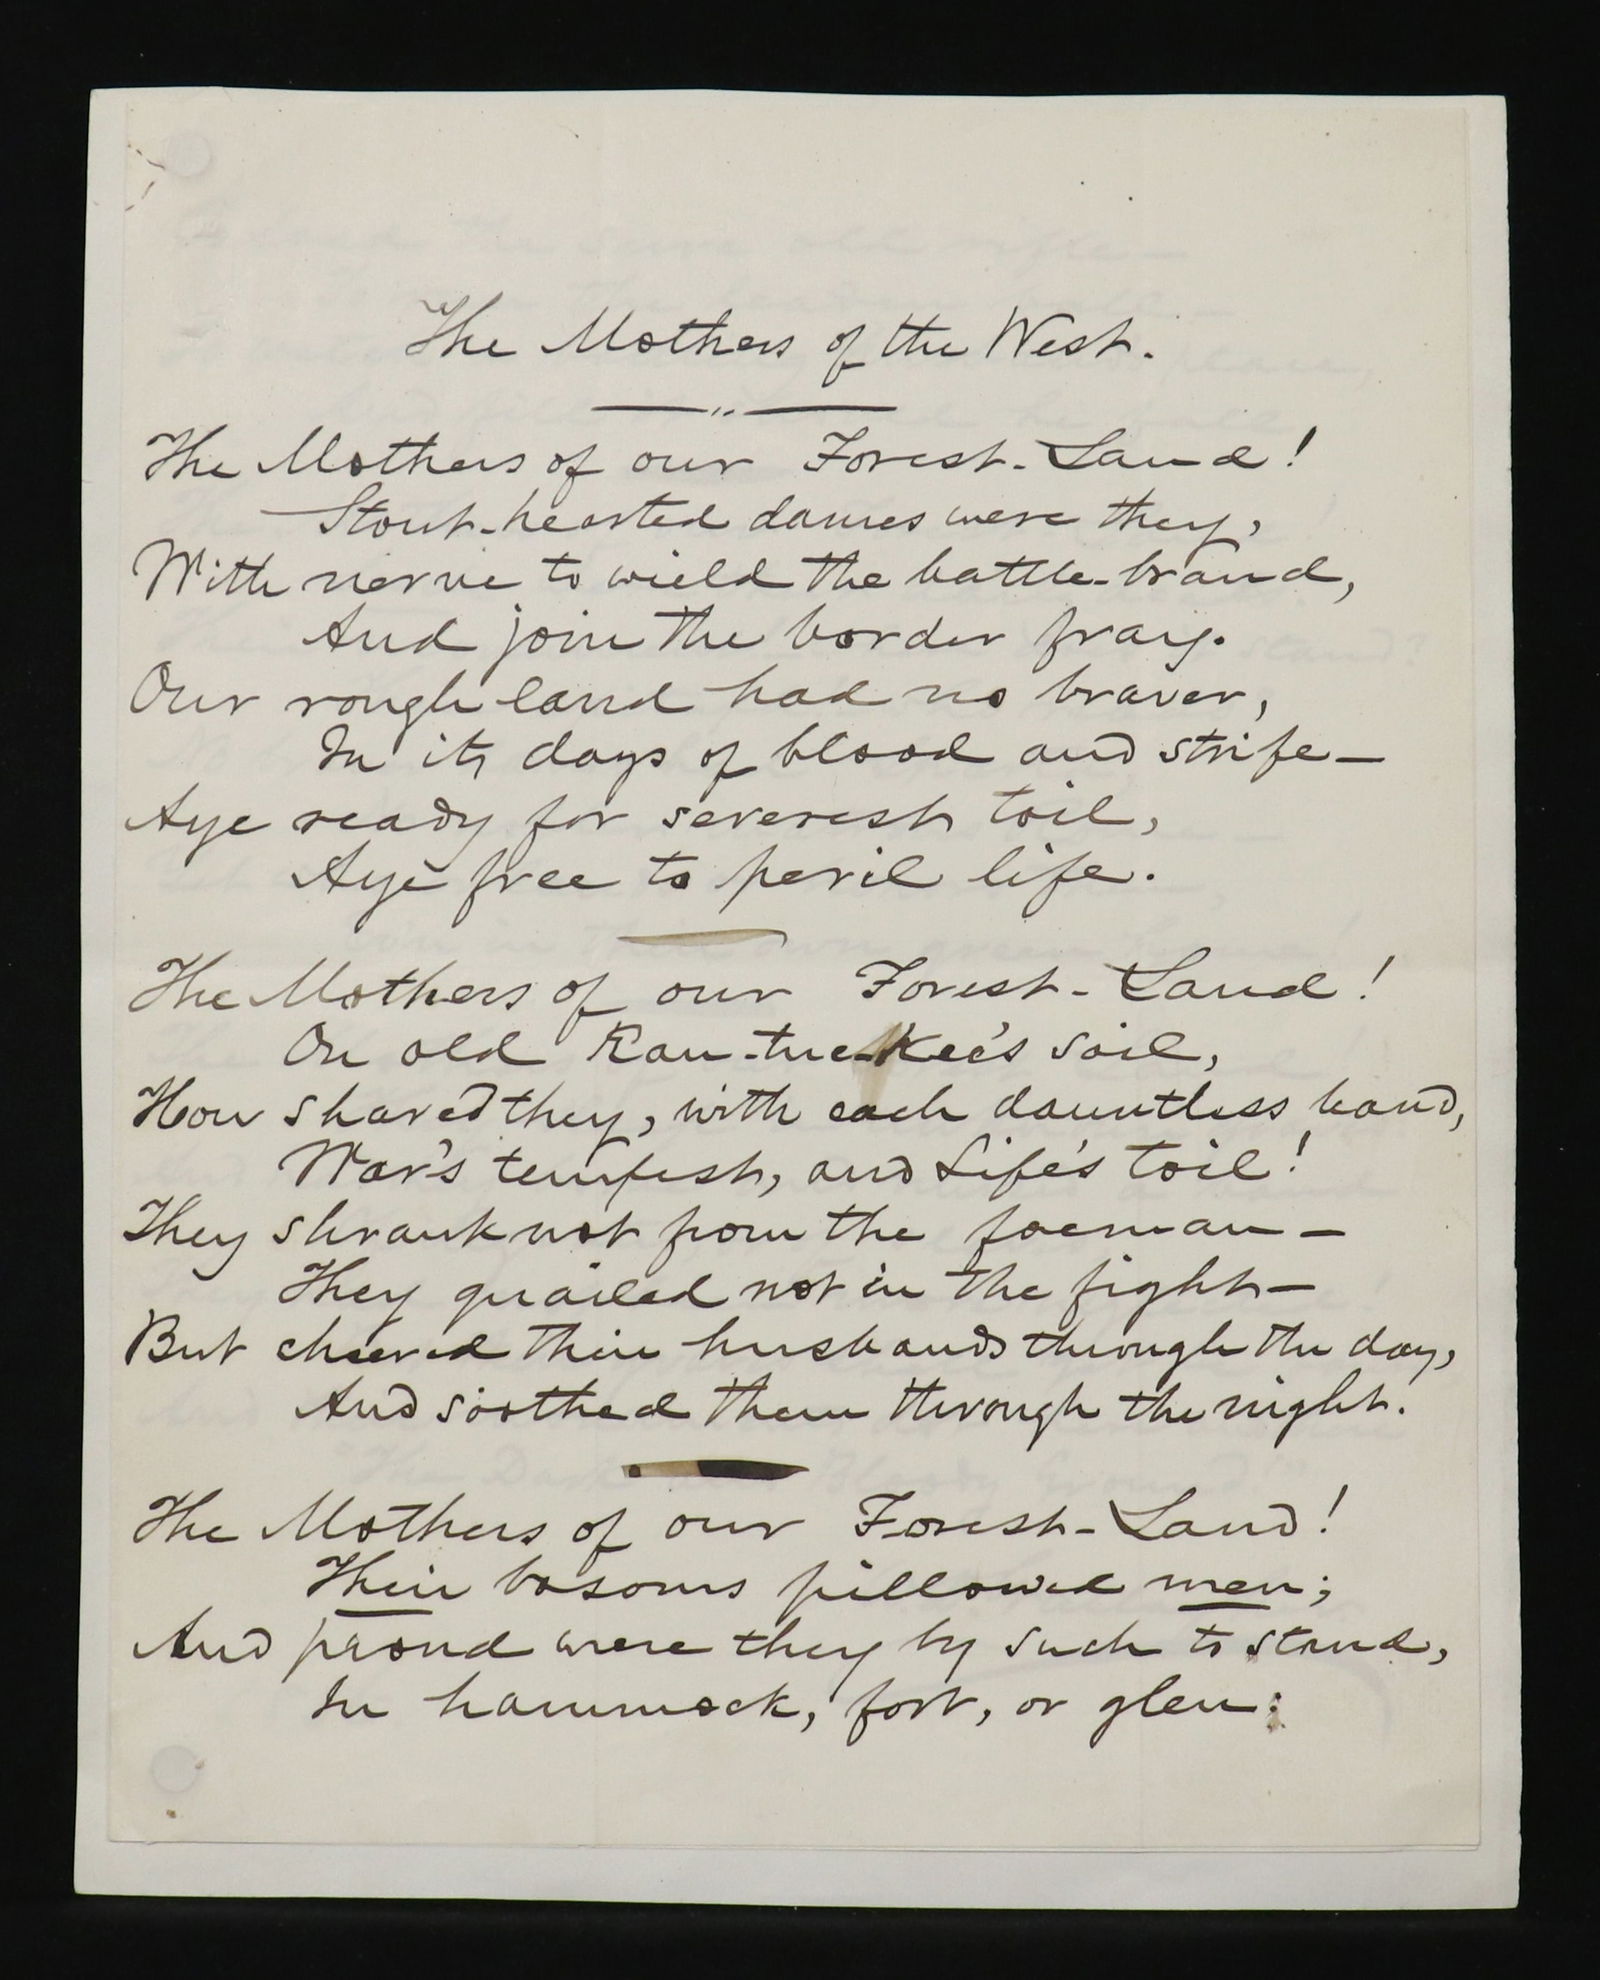 The Mothers of the West.
The Mothers of our Forest-Land!
Stout-hearted dames were they,
With nerve to wield the battle-brand,
And join the border fray.
Our rough land had no braver,
In its days of blood and strife—
Aye ready for severest toil,
Aye free to peril life.
The Mothers of our Forest-Land!
On old Kan-tuc-Kee's soil,
How shared they, with each dauntless band,
War's tempest, and Life's toil!
They shrank not from the foeman—
They quailed not in the fight—
But cheered their husbands through the day,
And soothed them through the night.
The Mothers of our Forest-Land!
Their bosoms pillowed men;
And proud were they by such to stand,
In hammock, fort, or glen;